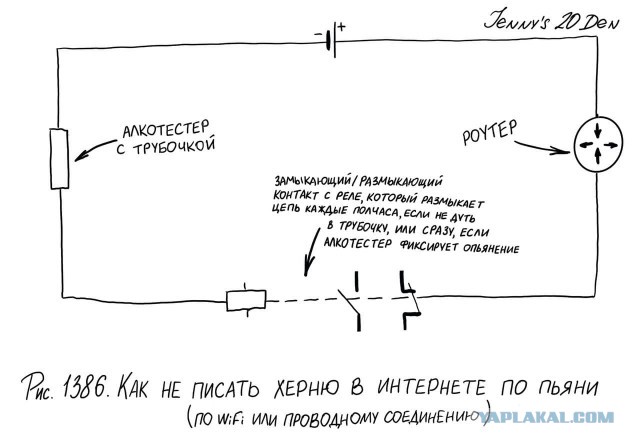 Jenny's 20 Den
- +
АЛКОТЕСТЕР
С ТРУБОЧКОЙ
РОУТЕР
ЗАМЫКАЮЩИЙ/РАЗМЫКАЮЩИЙ
КОНТАКТ С РЕЛЕ, КОТОРЫЙ РАЗМЫКАЕТ
ЦЕПЬ КАЖДЫЕ ПОЛЧАСА, ЕСЛИ НЕ ДУТЬ
В ТРУБОЧКУ, ИЛИ СРАЗУ, ЕСЛИ
АЛКОТЕСТЕР ФИКСИРУЕТ ОПЬЯНЕНИЕ
Рис. 1386. КАК НЕ ПИСАТЬ ХЕРНЮ В ИНТЕРНЕТЕ ПО ПЬЯНИ
(ПО WiFi ИЛИ ПРОВОДНОМУ СОЕДИНЕНИЮ)
YAPLAKAL.COM